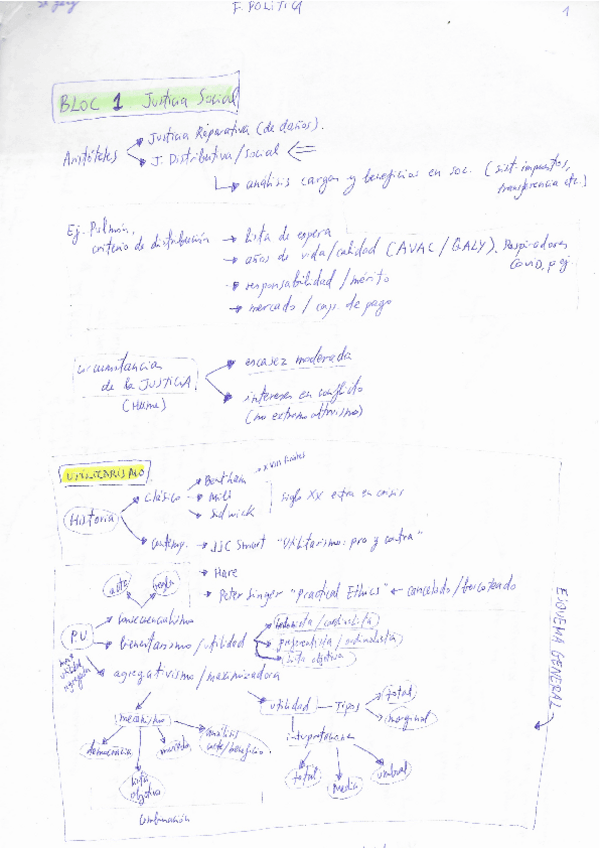 F. POLÍTICA
1
BLOC 1 Justicia Social
Aristóteles
Justicia Reparativa (de daños).
J. Distributiva/social
análisis cargas y beneficios en soc. (sist. impuestos,
transferencia etc.)
Ej. Pulmón,
criterio de distribución
lista de espera
años de vida/calidad (AVAC / QALY). Respiradores
Covid, p ej.
responsabilidad / mérito
mercado / cap. de pago
circunstancias
de la JUSTICIA
(Hume)
escasez moderada
intereses en conflicto
(no extremo altruismo)
UTILITARISMO
Historia
Clásico
Bentham
XVIII finales
Mill
Sidwick
siglo XX entra en crisis
Contemp.
JJC Smart "Utilitarismo: pro y contra"
Hare
Peter Singer "Practical Ethics" cancelado/boicoteado
acto
regla
PU
consecuencialismo
bienestarismo/utilidad
hedonista/cardinalista
preferentista/ordinalista
lista objetiva
agregativismo/maximizadora
mecanismo
democracia
lista
objetiva
mercado
análisis
coste/beneficio
Combinación
utilidad
Tipos
total
marginal
interpretaciones
total
Media
umbral
ESQUEMA GENERAL